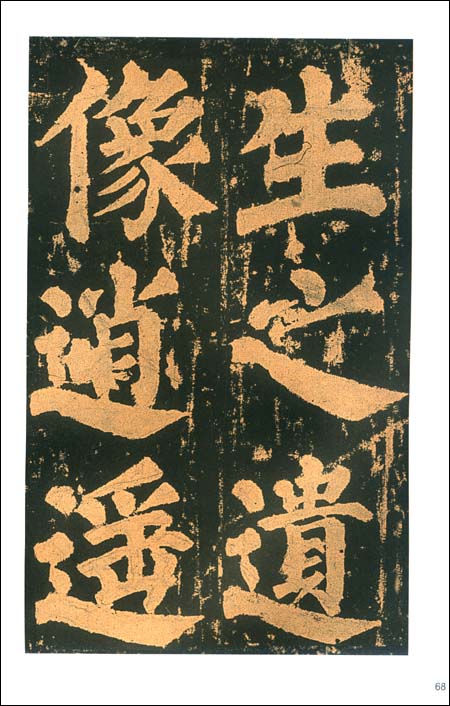 生之遺
像逍遥
68